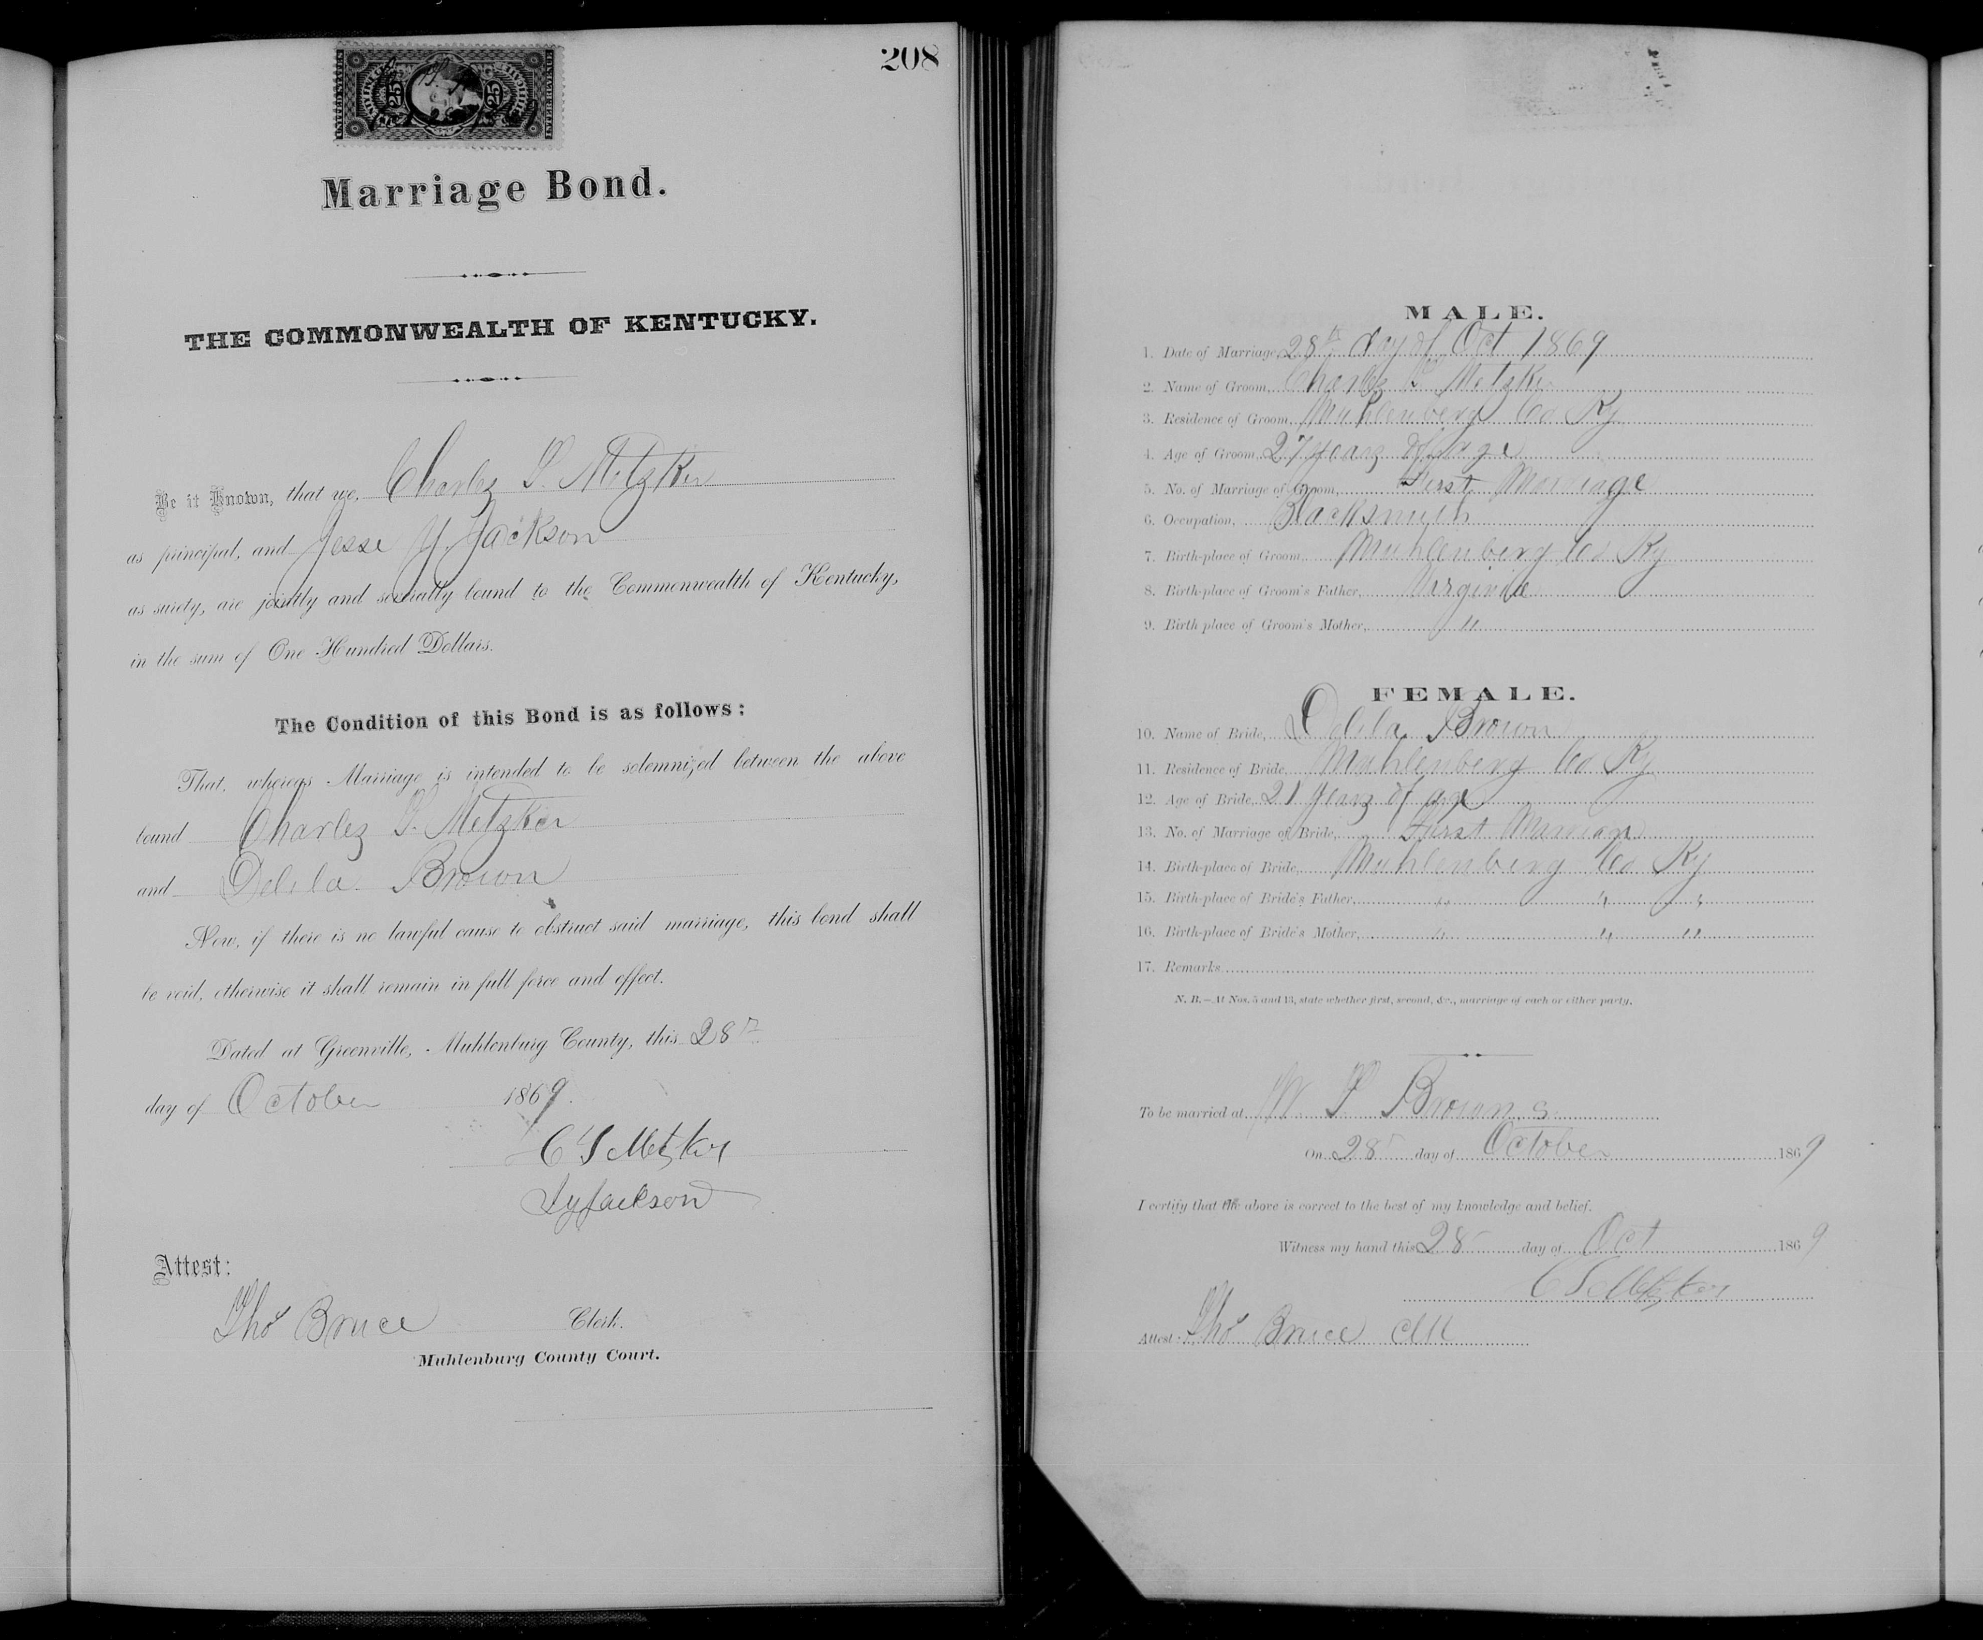 208
UNITED STATES
INTER. REVENUE
25
25
Marriage Bond.
THE COMMONWEALTH OF KENTUCKY.
Be it Known, that we, Charles S. Metzker
as principal, and Jesse Y. Jackson
as surety, are jointly and severally bound to the Commonwealth of Kentucky,
in the sum of One Hundred Dollars.
The Condition of this Bond is as follows:
That, whereas Marriage is intended to be solemnized between the above
bound Charles S. Metzker
and Delila Brown
Now, if there is no lawful cause to obstruct said marriage, this bond shall
be void, otherwise it shall remain in full force and effect.
Dated at Greenville, Muhlenburg County, this 28th
day of October 1869.
C S Metzker
J Y Jackson
Attest:
Thos Bruce Clerk.
Muhlenburg County Court.
MALE.
1. Date of Marriage, 28th day of Oct 1869
2. Name of Groom, Charles S Metzker
3. Residence of Groom, Muhlenberg Co Ky
4. Age of Groom, 27 years of age
5. No. of Marriage of Groom, First Marriage
6. Occupation, Blacksmith
7. Birth-place of Groom, Muhlenberg Co Ky
8. Birth-place of Groom's Father, Virginia
9. Birth-place of Groom's Mother, "
FEMALE.
10. Name of Bride, Delila Brown
11. Residence of Bride, Muhlenberg Co Ky
12. Age of Bride, 21 years of age
13. No. of Marriage of Bride, First Marriage
14. Birth-place of Bride, Muhlenberg Co Ky
15. Birth-place of Bride's Father, " " "
16. Birth-place of Bride's Mother, " " "
17. Remarks
N. B.—At Nos. 5 and 13, state whether first, second, &c., marriage of each or either party.
To be married at Brown s
On 28 day of October 1869
I certify that the above is correct to the best of my knowledge and belief.
Witness my hand this 28 day of Oct 1869
C S Metzker
Attest: Thos Bruce Clk